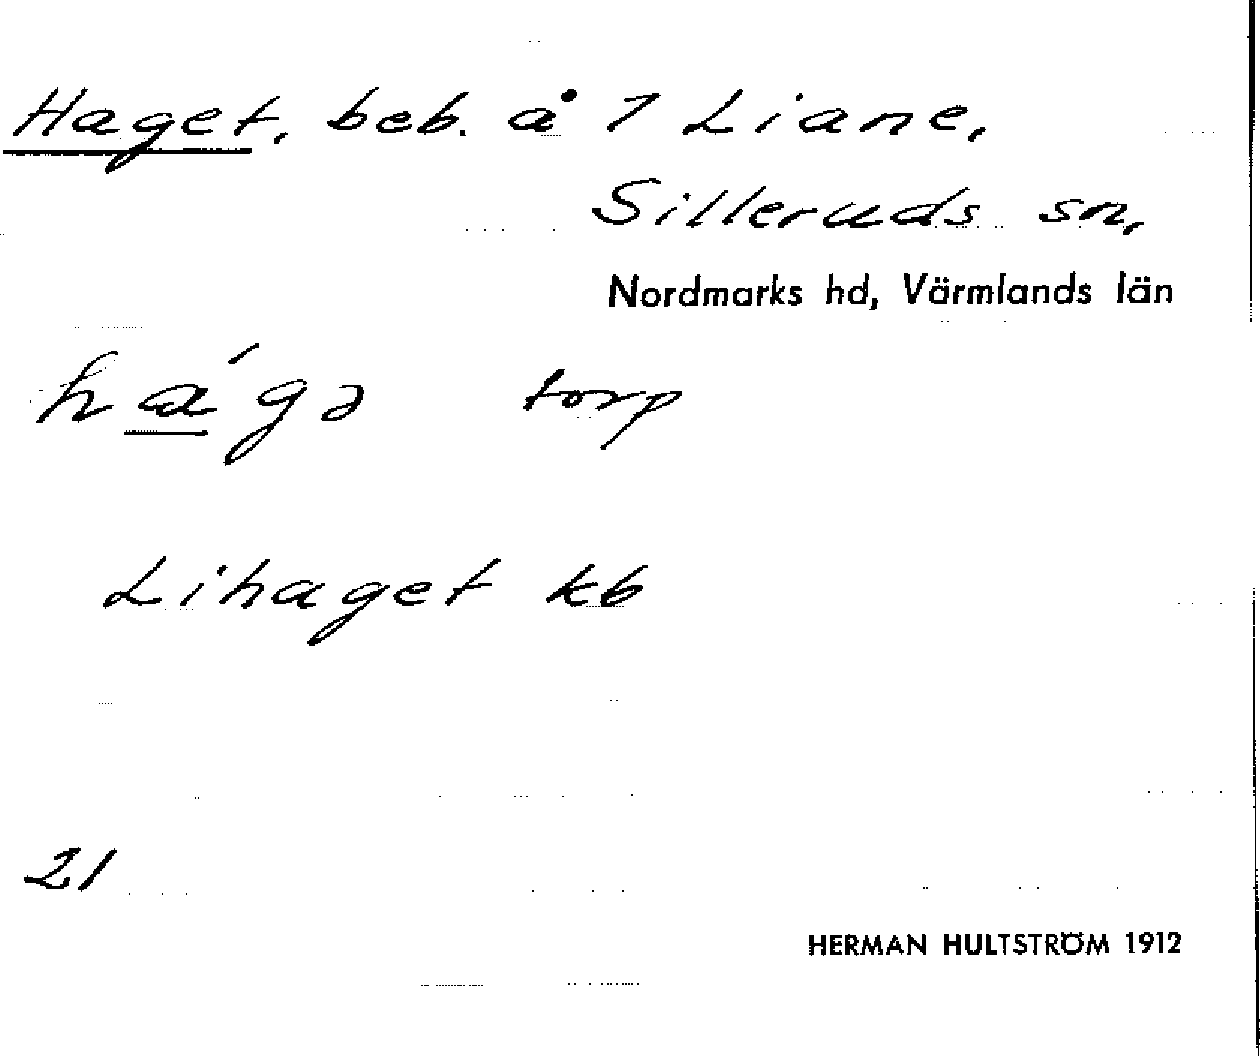 Haget, beb. å 1 Liane,
Silleruds sn,
Nordmarks hd, Värmlands län
ha̲´gə torp
Lihaget kb
21
HERMAN HULTSTRÖM 1912